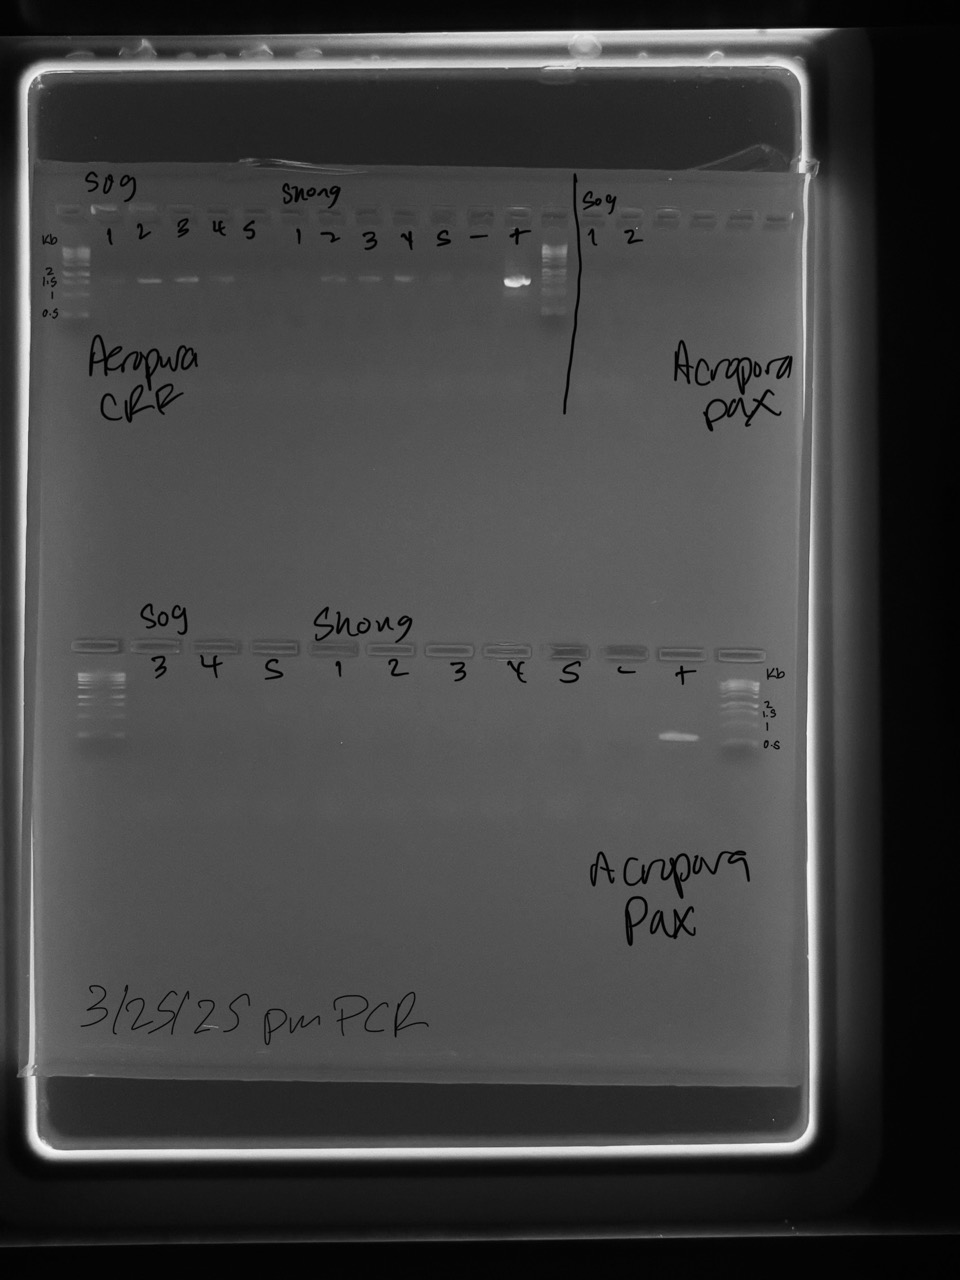 Sog Shong Sog
Kb 1 2 3 4 5 1 2 3 4 5 - + 1 2
2
1.5
1
0.5
Acropora
CRR
Acropora
pax
Sog Shong
3 4 5 1 2 3 4 5 - + Kb
2
1.5
1
0.5
Acropora
Pax
3/25/25 pm PCR